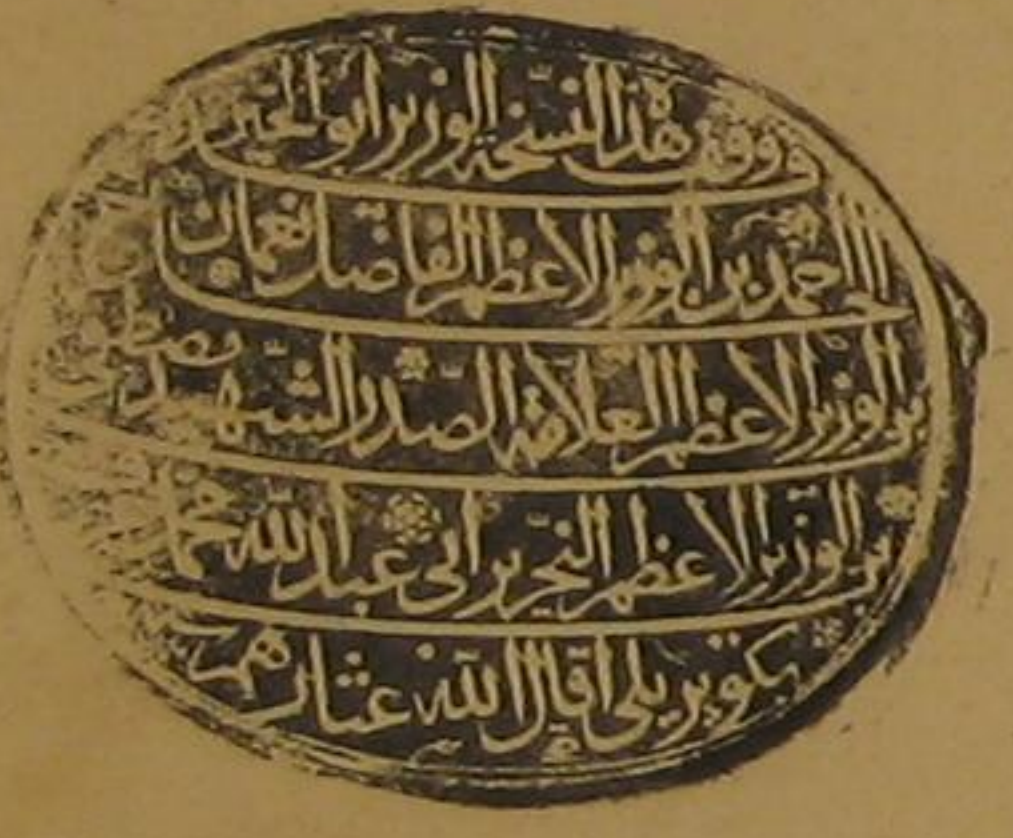 وقف هذا النسخة الوزير ابو الخير
الحاج احمد بن الوزير الاعظم الفاضل نعمان
بن الوزير الاعظم العلامة الصدر الشهيد مصطفى
بن الوزير الاعظم النحرير ابي عبد الله محمد
بكوپريلي اقال الله عثارهم